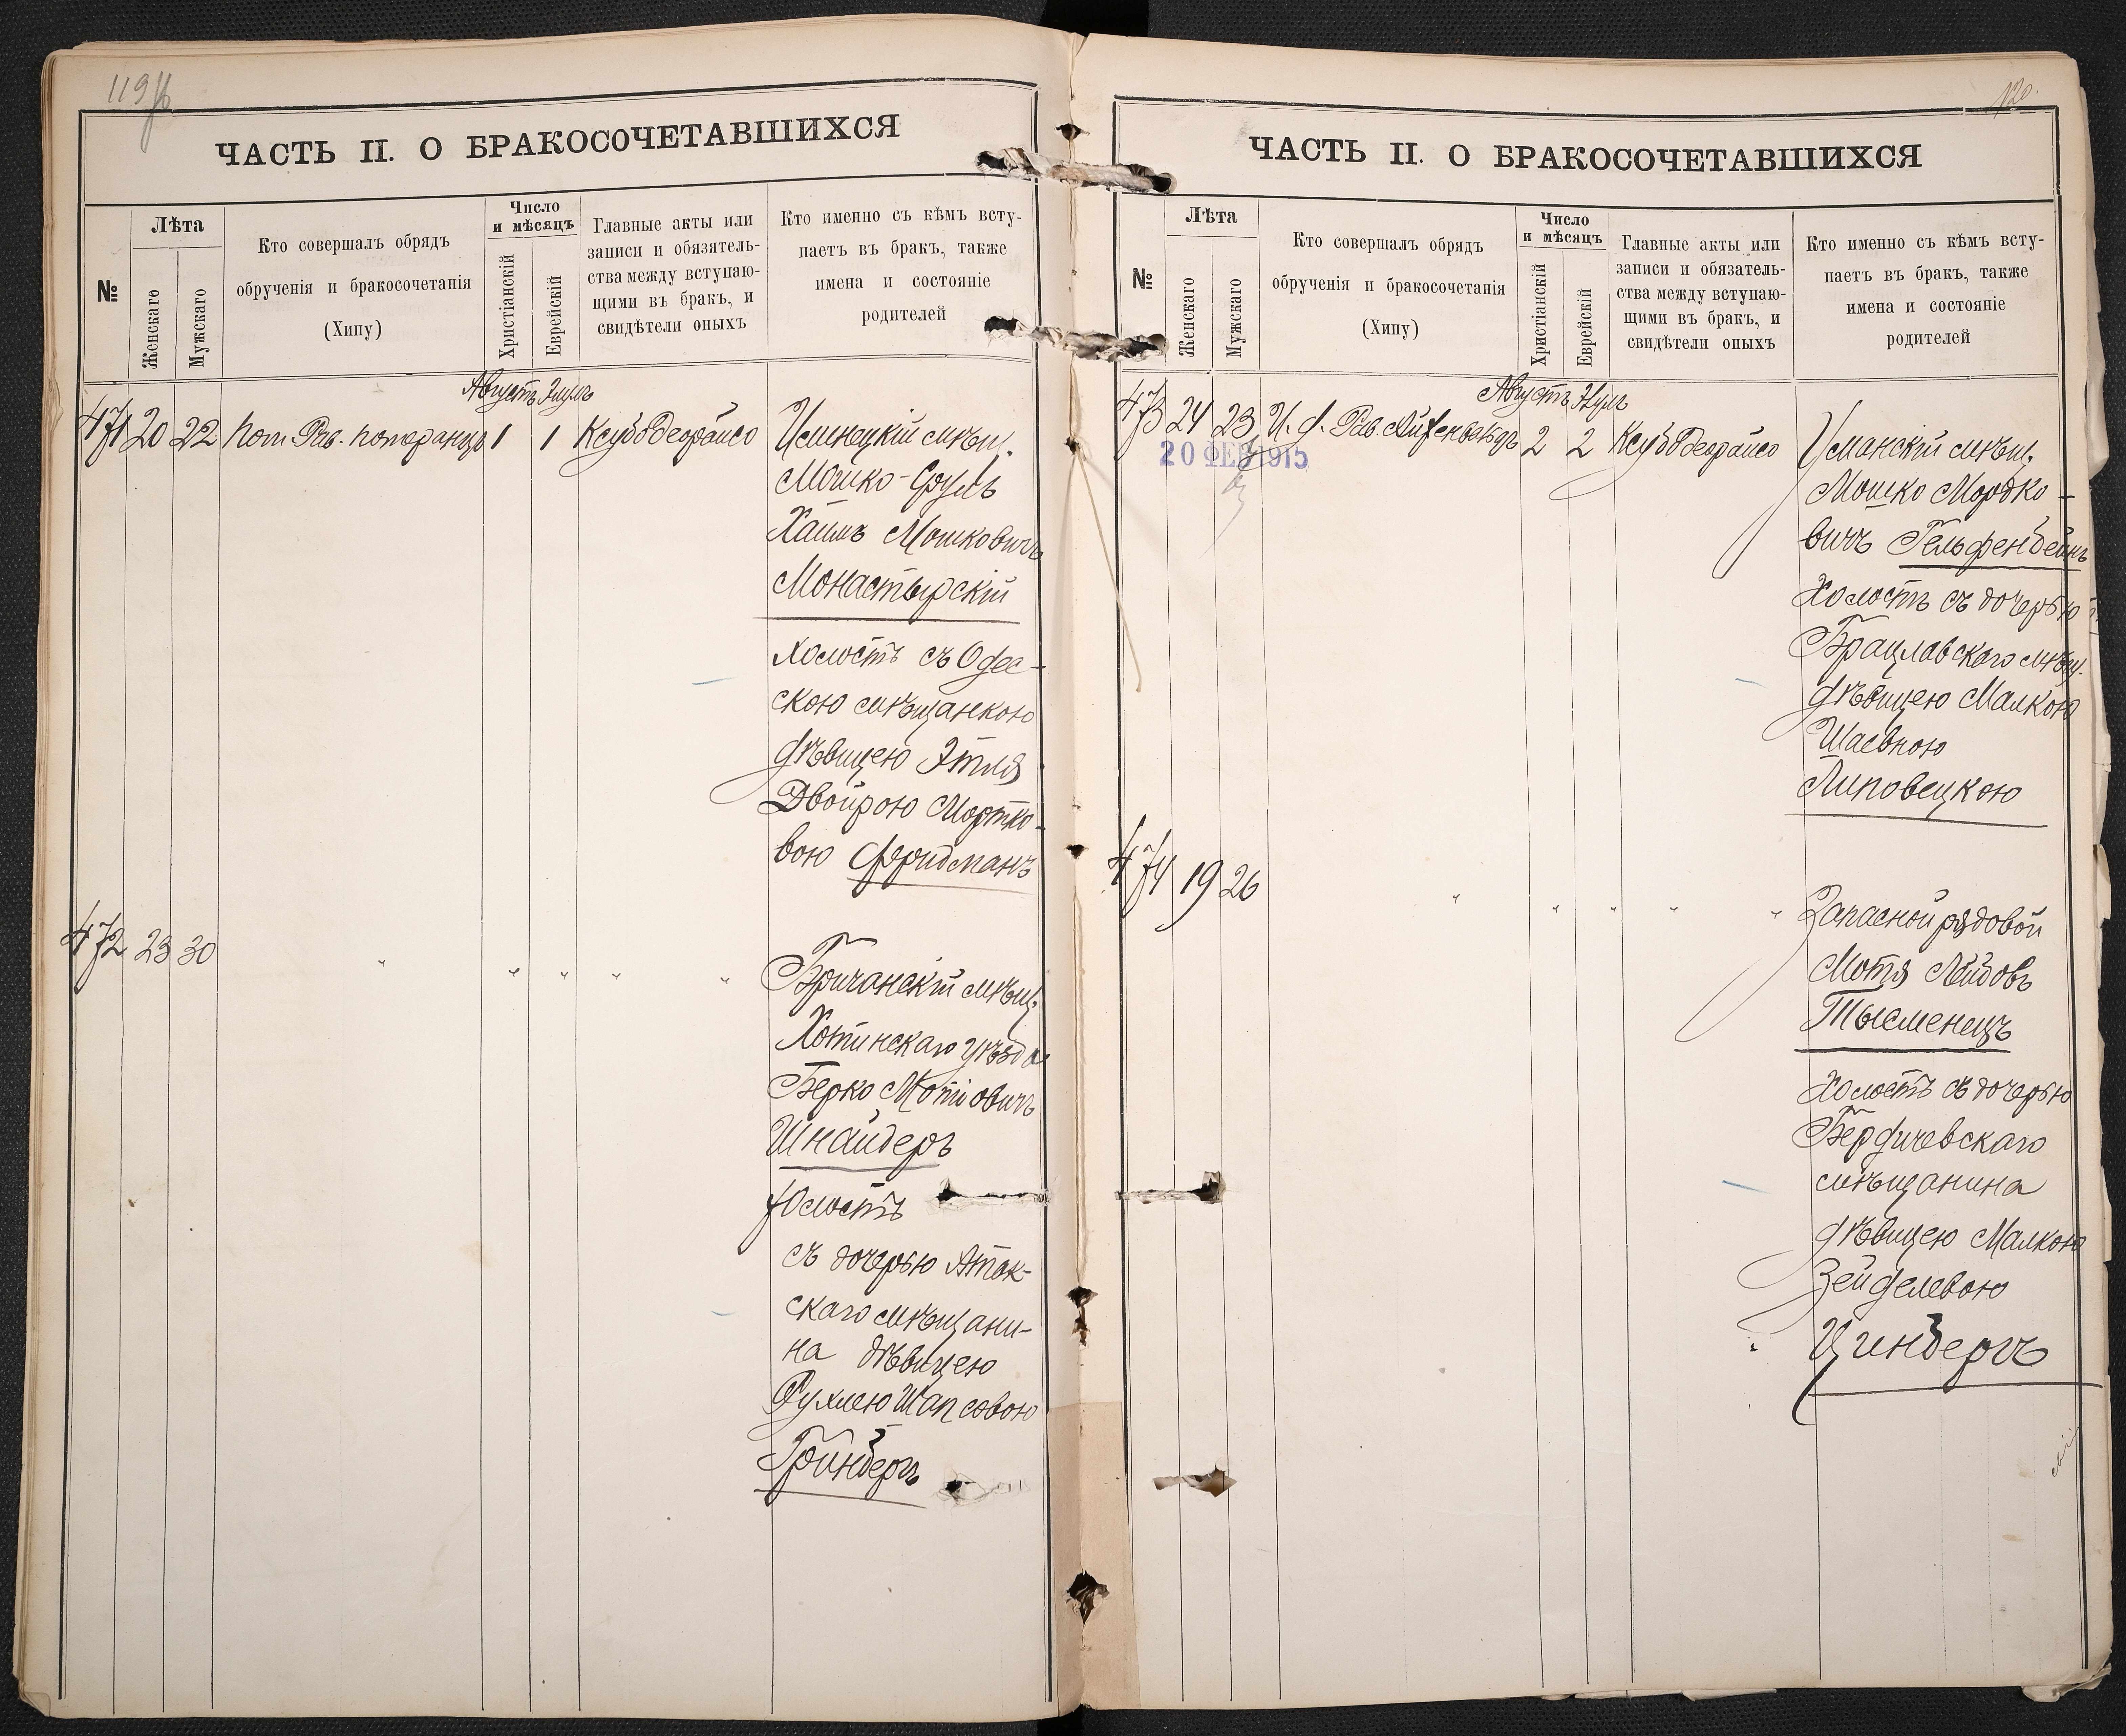 119
ЧАСТЬ II. О БРАКОСОЧЕТАВШИХСЯ
№
Лѣта
Женскаго
Мужскаго
Кто совершалъ обрядъ
обрученія и бракосочетанія
(Хипу)
Число
и мѣсяцъ
Христіанскій
Еврейскій
Главные акты или
записи и обязатель-
ства между вступаю-
щими въ бракъ, и
свидѣтели оныхъ
Кто именно съ кѣмъ всту-
паетъ въ бракъ, также
имена и состояніе
родителей
Августъ Элулъ
471 20 22 Пом. Рав. Померанцъ 1 1 Ксубо Деорайсо
мѣщ.
Мошко-Сруль
Хаимъ Мошковичъ
Монастырскій
холостъ съ Одес-
скою мѣщанкою
дѣвицею Этля
Двойрою Мортко-
вою Фридманъ
472 23 30 " " " " "
Бричанскій мѣщ.
Хотинскаго уѣзда
Берко Мотіовичъ
Шнайдеръ
Холостъ
съ дочерью Атак-
скаго мѣщани-
на дѣвицею
Рухлею Шапсовою
Гринбергъ
120.
ЧАСТЬ II. О БРАКОСОЧЕТАВШИХСЯ
№
Лѣта
Женскаго
Мужскаго
Кто совершалъ обрядъ
обрученія и бракосочетанія
(Хипу)
Число
и мѣсяцъ
Христіанскій
Еврейскій
Главные акты или
записи и обязатель-
ства между вступаю-
щими въ бракъ, и
свидѣтели оныхъ
Кто именно съ кѣмъ всту-
паетъ въ бракъ, также
имена и состояніе
родителей
Августъ Элулъ
473 24 23 И. д. Рав. 2 2 Ксубо Деорайсо
20 ФЕВ 1915
Уманскій мѣщ.
Мошко Мордко-
вичъ Гельфенбейнъ
Холостъ съ дочерью
Брацлавскаго мѣщ.
дѣвицею Малкою
Шаевною
Липовецкою
474 19 26 " " " " "
Запасной рядовой
Мотя Лейдовъ
Тысменецъ
Холостъ съ дочерью
Бердичевскаго
мѣщанина
дѣвицею Малкою
Зейделевою
Цинбергъ